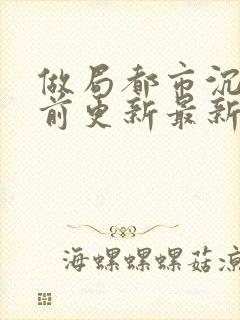 做局都市沉
前更新最新
海螺螺螺菇凉